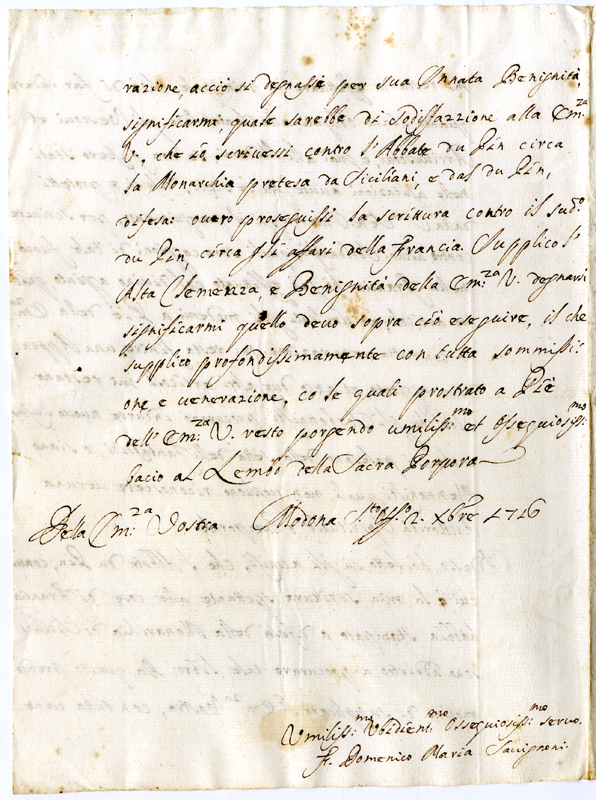 razione, acciò si degnasse per sua Innata Benignità,
significarmi, quale sarebbe di sodisfazzione alla Em:za
V., che io scrivessi contro l'Abbate du Pin circa
la Monarchia pretesa da Siciliani, e dal du Pin,
difesa: overo proseguissi la scrittura contro il sud:o
du Pin, circa gli affari della Francia. Supplico l'
Alta Clemenza, e Benignità della Em:za V. degnarsi
significarmi quello devo sopra ciò eseguire, il che
supplico profondissimamente con tutta sommissi:
one, e venerazione, co le quali prostrato a Piè
dell'Em:za V. resto porgendo umiliss:mo et Ossequiosiss:mo
bacio al Lembo della Sacra Porpora
Della Em:za Vostra Modona 2. Xbre 1716
Umiliss:mo Obidient:mo Ossequiosiss:mo servo.
F. Domenico Maria